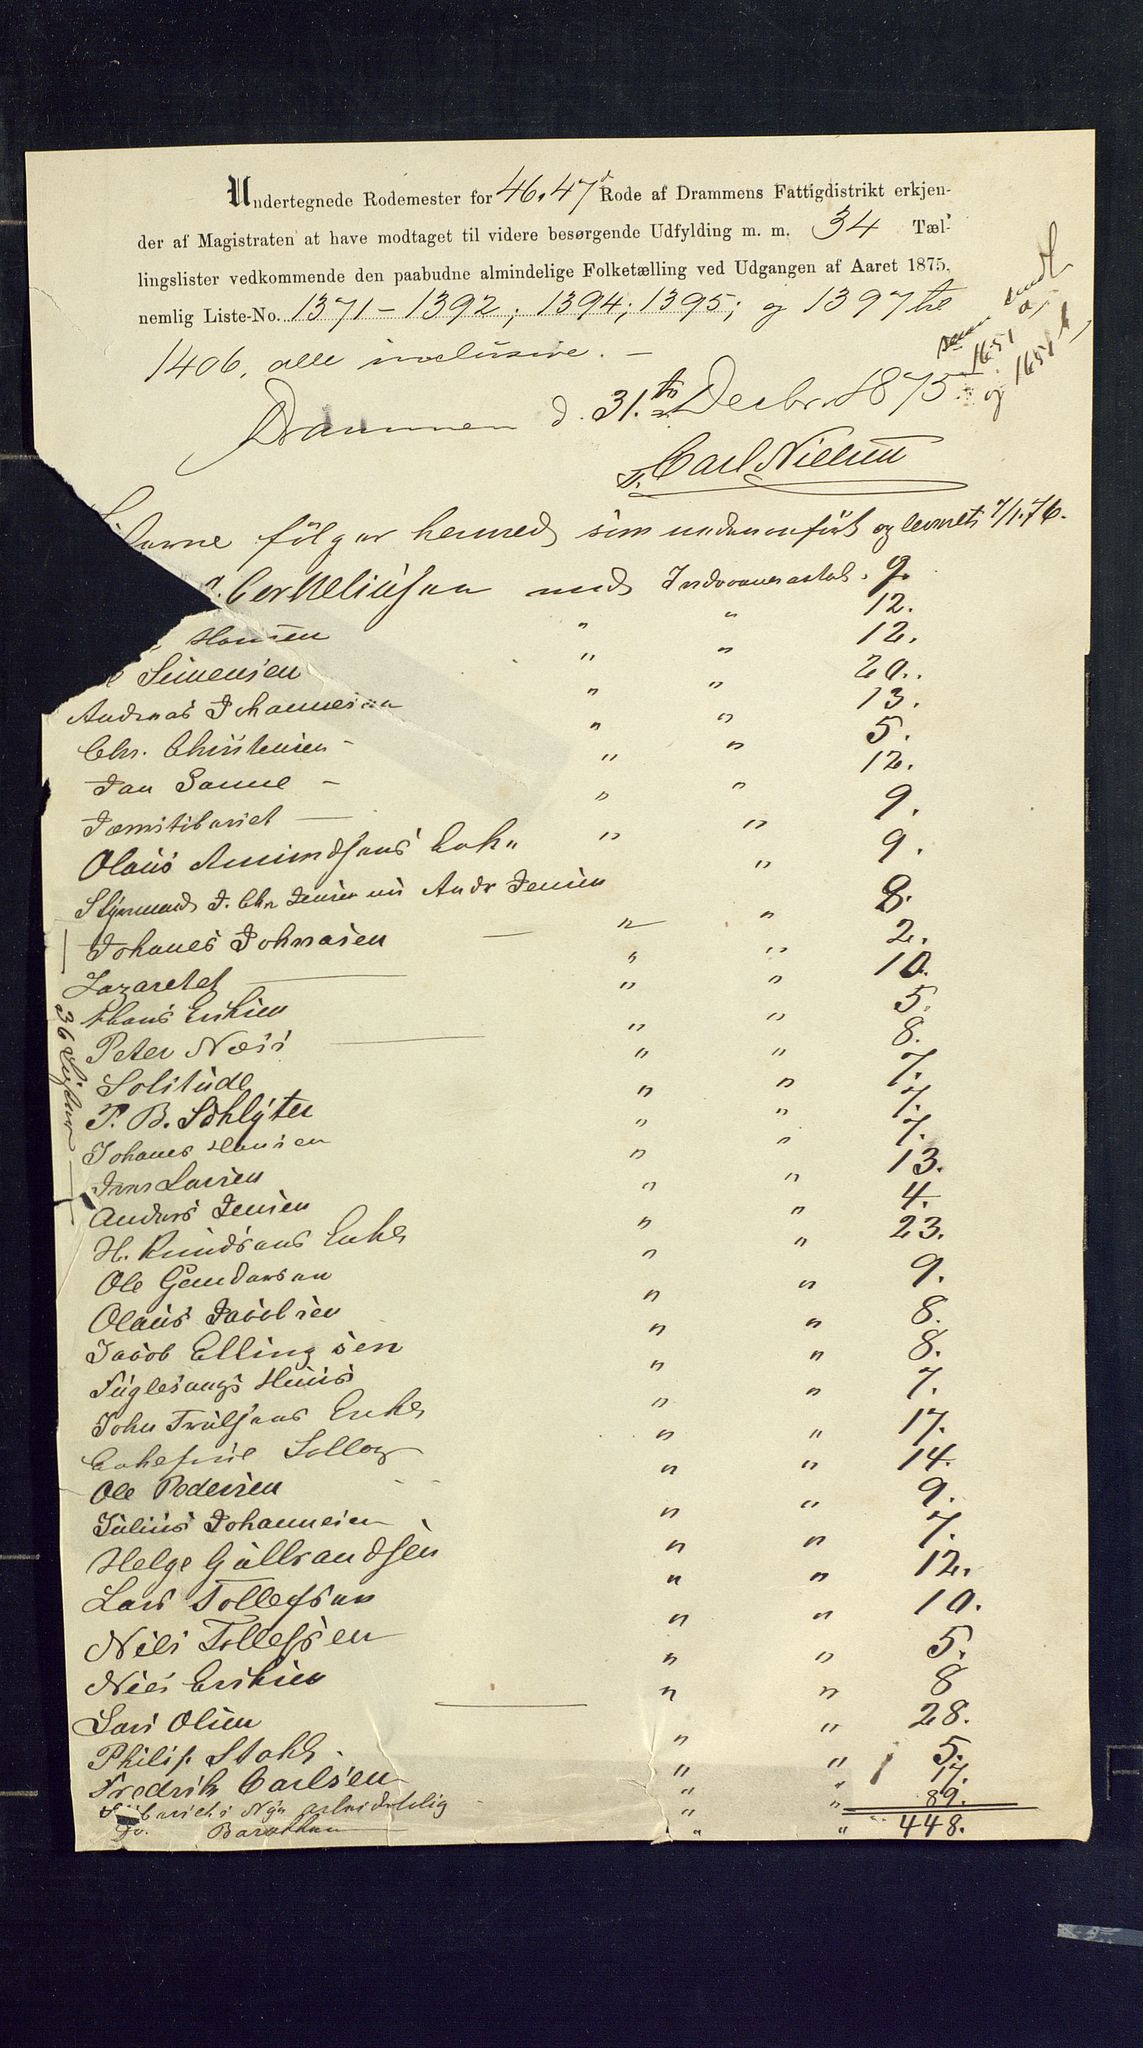 Undertegnede Rodemester for 46. 47d Rode af Drammens Fattigdistrikt erkjen-
der af Magistraten at have modtaget til videre besørgende Udfylding m. m. 34 Tæl-
lingslister vedkommende den paabudne almindelige Folketælling ved Udgangen af Aaret 1875,
nemlig Liste-No. 1371 – 1392; 1394; 1395; og 1397 til
1406, alle inclusive. –
samt
1651 a,
og 1651 b,
Drammen d. 31.te Decbr. 1875.
Carl Nielsen
følger hermed som underanført og leveret 7/1.76.
Corneliussen med Indvaanerantal. 9.
Hansen " " 12.
Simensen " " 12.
Andreas Johannesen " " 20.
Chr. Christensen – " " 13.
Jan Sanne – " " 5.
" " 12.
Olaus Amundsens Enke " " 9.
Styrmand J. Chr Jensen Andr Jensen " 9.
Johanes Johnasen — " " 8.
Lazarettet — " " 2.
Hans Eriksen " " 10.
Peter Næss — " " 5.
Solitude " " 8.
P. B. Schlyter " " 7.
Johanes Hansen " " 7.
Jens Larsen " " 7.
Anders Jensen " " 13.
H. Knudsens Enke " " 4.
Ole Gundersen " " 23.
Olaus Jacobsen " " 9.
Jacob Ellingsen " " 8.
Fuglesangs Huus " " 8.
John Trulsens Enke " " 7.
Enkefrue " " 17.
Ole Pedersen " " 14.
Julius Johannesen " " 9.
Helge Gulbrandsen " " 7.
Lars Tollefsen " " 12.
Nils Tollefsen " " 10.
Nils Eriksen " " 5.
Lars Olsen — " " 8
Philip Stohl. " " 28.
Fredrik Carlsen " " 5.
Nye " " 17.
Do. Barakken " " 89.
448.
36 Lister